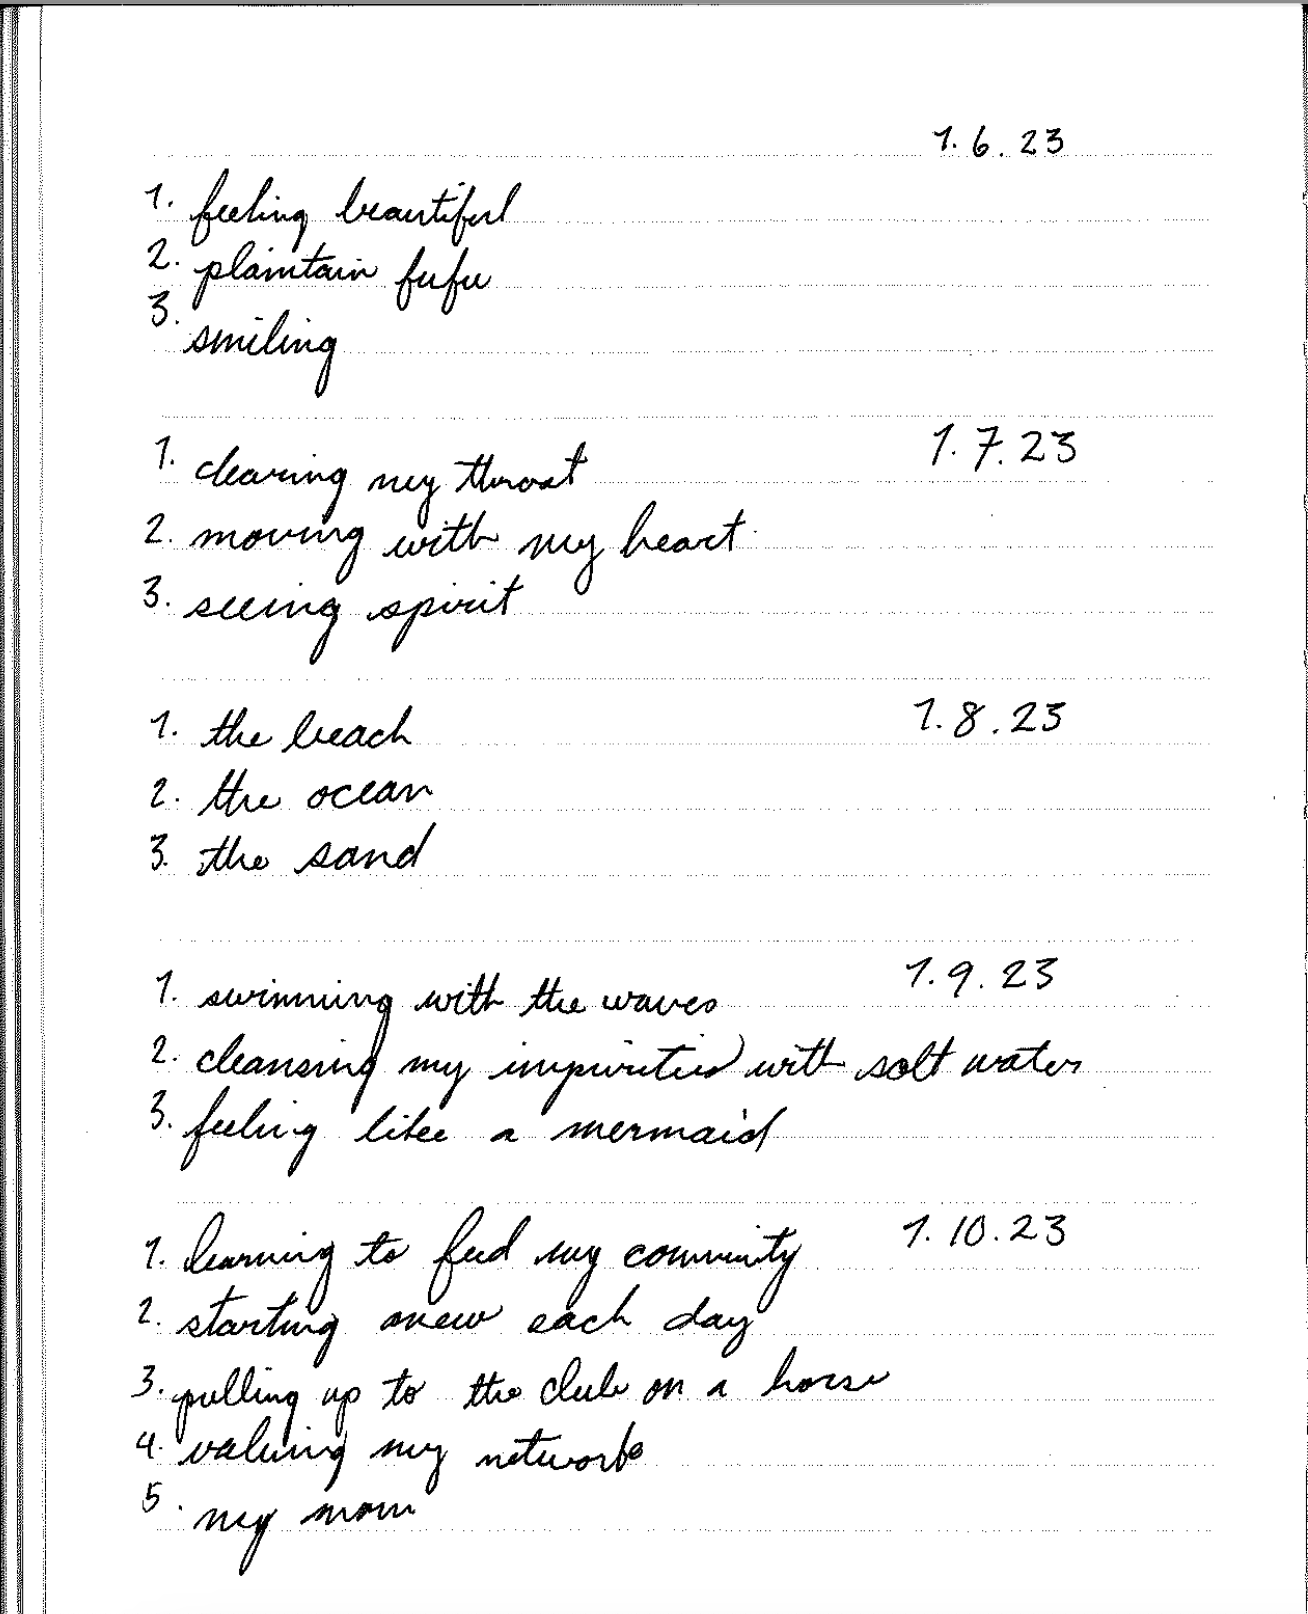 1.6.23
1. feeling beautiful
2. plaintain fufu
3. smiling
1.7.23
1. clearing my throat
2. moving with my heart
3. seeing spirit
1.8.23
1. the beach
2. the ocean
3. the sand
1.9.23
1. swimming with the waves
2. cleansing my impurities with salt water
3. feeling like a mermaid
1.10.23
1. learning to feed my community
2. starting anew each day
3. pulling up to the club on a horse
4. valuing my network
5. my mom